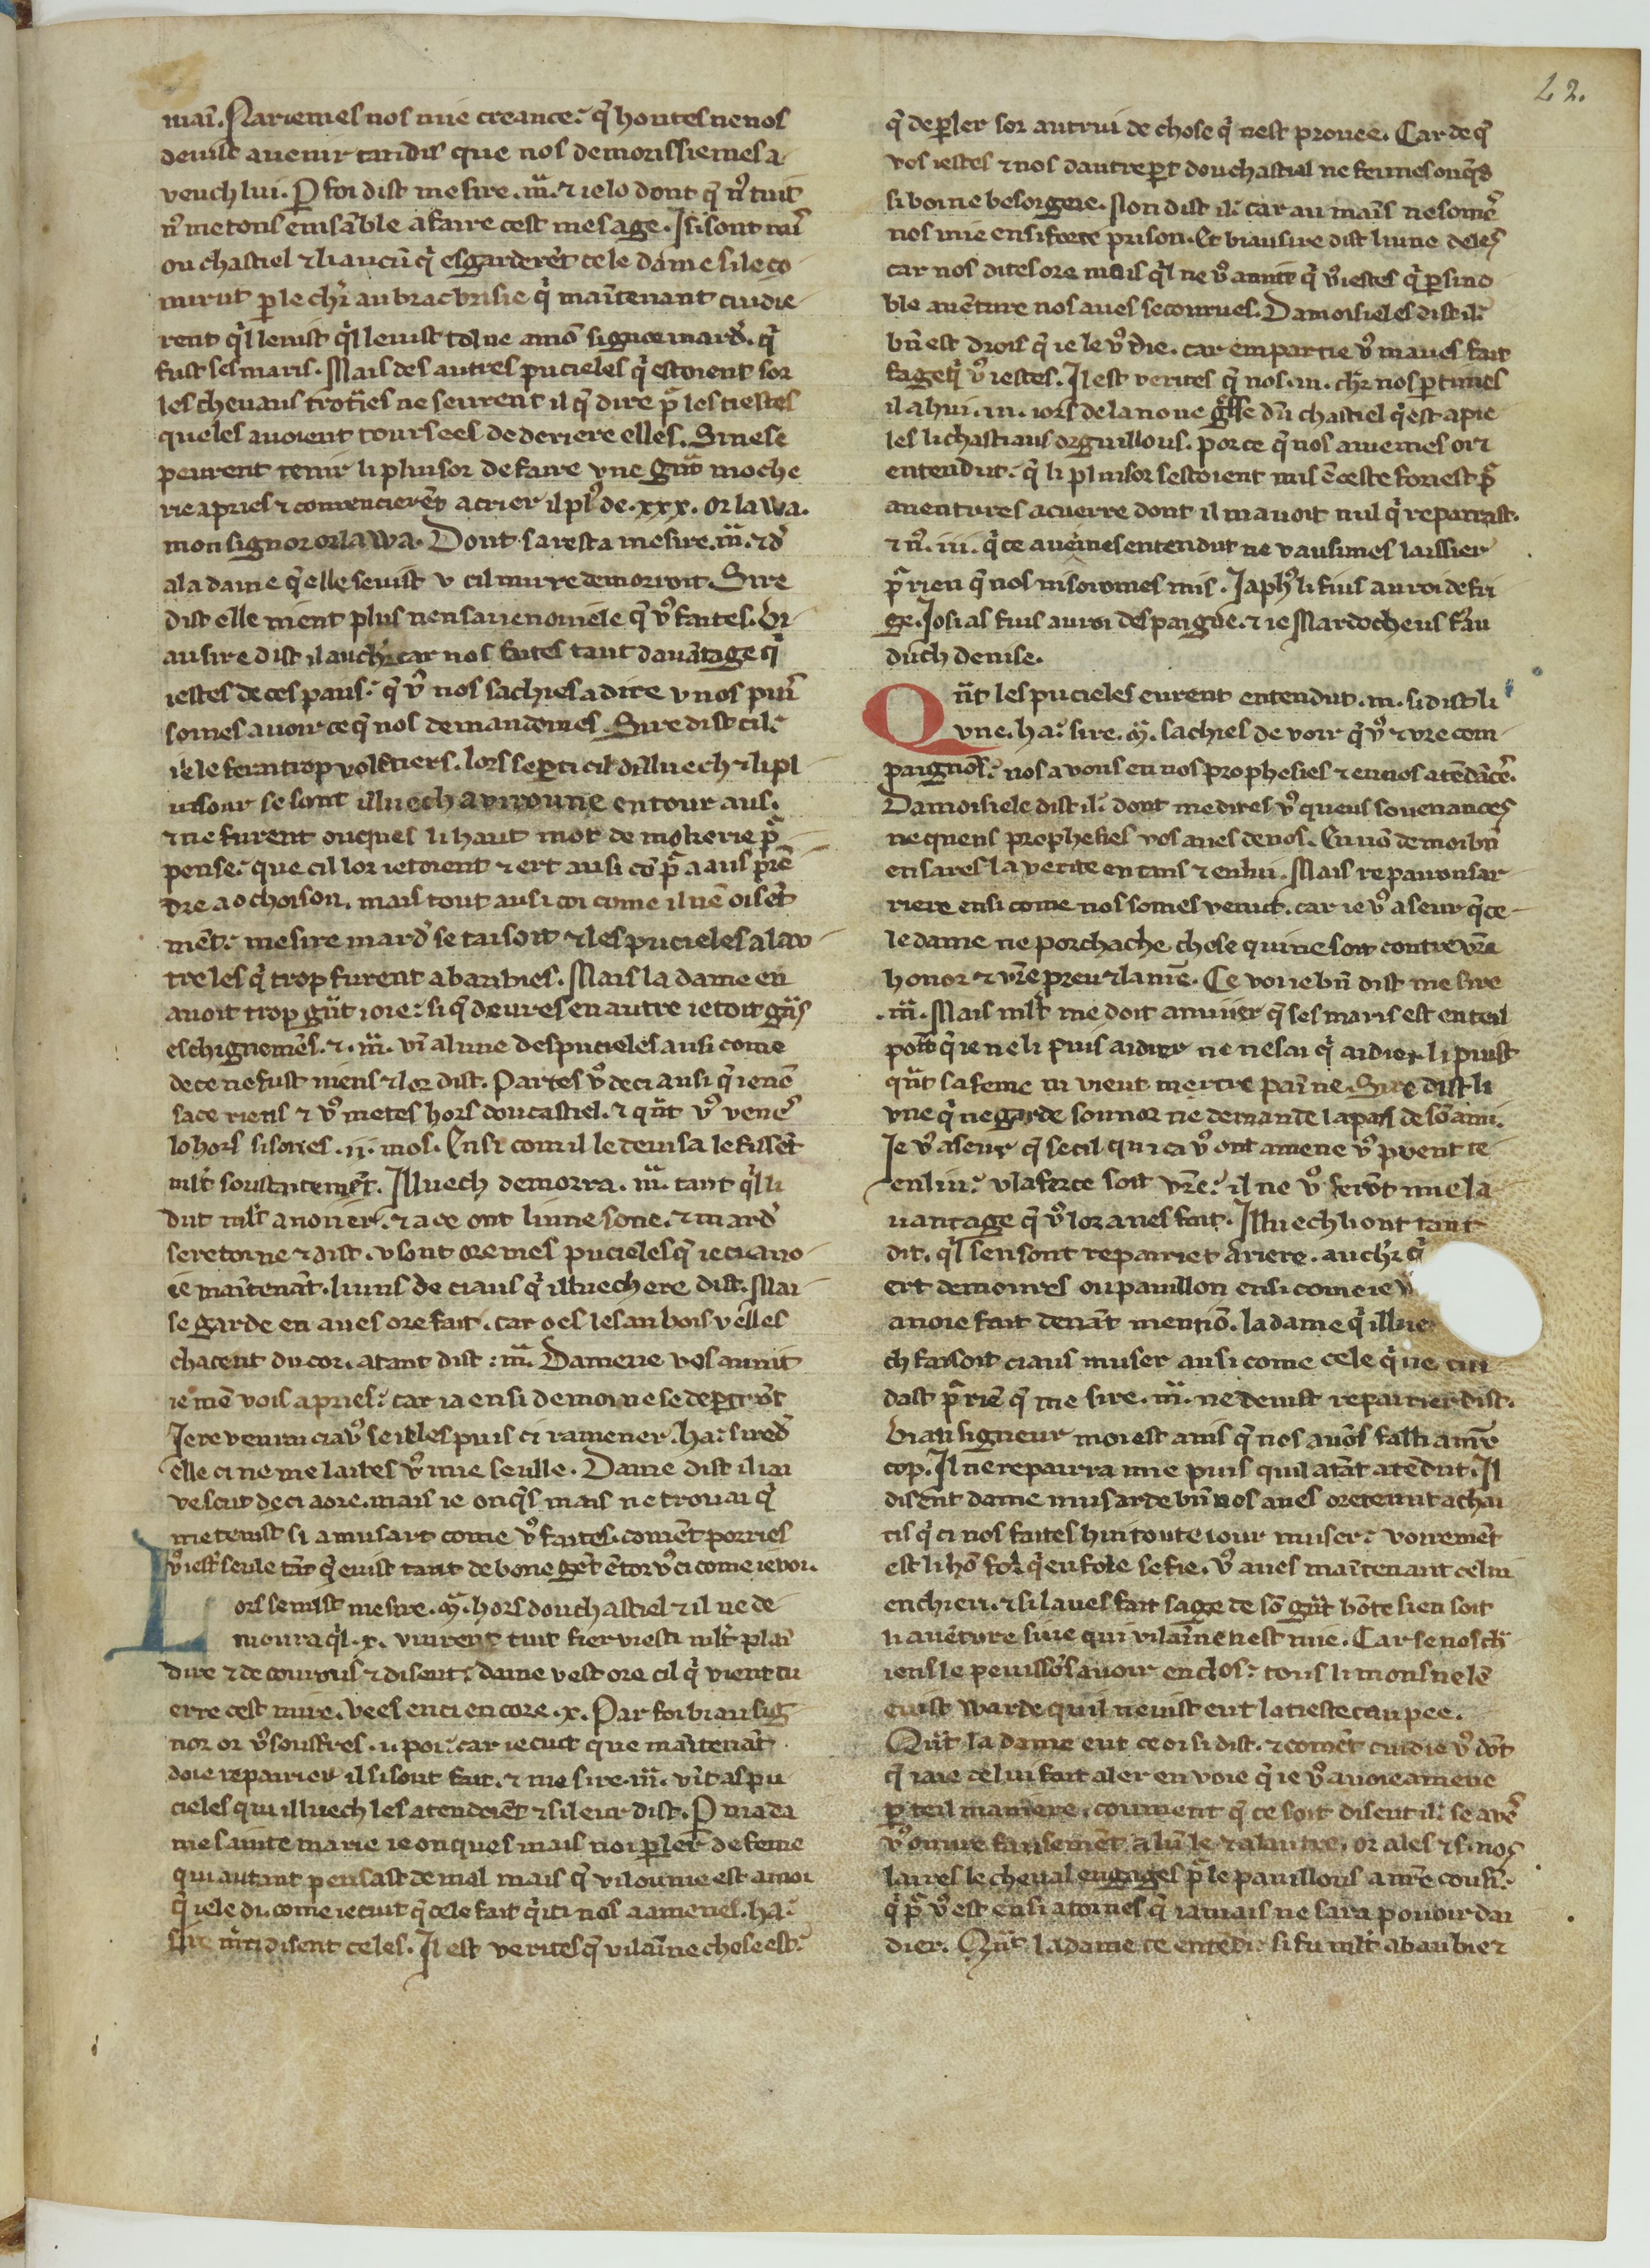 22.
mai᷑. Nariemes nos mie creance. q̃ hontes ne nos
deuist auenir tandis que nos demorissiemes a
veuch lui. P foi dist me sire .m̃. ⁊ ie lo dont q̃ nꝰ tuit
nꝰ metons ensãble a faire cest mesage. Isi sont
ou chastiel ⁊ li aucũ q̃ esgarderẽt cele dame si le co
nurut ꝑ le chr̃ au brac brisie q̃ maĩtenant cuidie
rent q̃l leuist q̃l leuist tolue a mõ signor mard̾. q̃
fust ses maris. Mais des autres pucieles q̃ estoient sor
les cheuaus ne seurent il q̃ dire p̃ les tiestes
queles auoient toursees de deriere elles. Si ne se
peurent tenir li pluisor de faire vne gñt moche
rie apries ⁊ comencierẽt a crier il plꝰ de .xxx. or la wa.
mon signor or la wa. Dont saresta me sire .m̃. ⁊ d̾
a la dame q̃ elle seuist v cil mire demorroit. Sire
dist elle nient plus nen sai enomiele q̃ vꝰ faites. Bi
au sire dist il au chr̃ car nos faites tant dauãtage q̃
iestes de ces pais. q̃ vꝰ nos sachies a dire v nos puiſ
somes auoir ce q̃ nos demandomes. Sire dist cil.
ie le ferai trop volẽtiers. lors se parti cil dilluech ⁊ li pl
uisour se sont illuech avironne entour aus.
⁊ ne furent onques li haut mot de mokerie p̃
pense. que cil lor ietoient ⁊ ert ausi cõ p̃ a aus prẽ
dre a ochoison. mais tout ausi coi come il nẽ oisẽt
niẽt. me sire mard̾ se taisoit ⁊ les pucieles a lau
tre les q̃ trop furent abaubies. Mais la dame en
auoit trop gñt ioie. si q̃ deures en autre ietoit gñs
eschignemẽs. ⁊ .m̃. vĩ a lune des pucieles ausi come
de ce ne fust niens ⁊ lor dist. Partes vꝰ de ci ausi q̃ ie nẽ
sace riens ⁊ vꝰ metes hors dou castiel. ⁊ qñt vꝰ venes
la hors si sones .ii. mos. Ensi com il le deuisa le fisẽt
ml̃t soutaitemẽt. Illuech demorra .m̃. tant q̃l li
dut ml̃t anoier. ⁊ a ce ont li une sone. ⁊ mard̾
se retorne ⁊ dist. v sont ore mes pucieles q̃ ie ci auo
ie maĩtenãt. li uns de ciaus q̃ illuech ere dist. Mai
se garde en aues ore fait. car oes les au bois v elles
chacent du cor. atant dist .m̃. Dame ne vos anuit
ie mẽ vois apries. car ia ensi de moi ne se departirõt
Je revenrai ci a vꝰ se ie les puis ci ramener. ha. sire d̾
elle ci ne me laites vꝰ mie seulle. Dame dist il iai
vescut deci a ore. mais ie onq̃s mais ne trouai q̃
me tenist si a musart come vꝰ faites. comẽt porries
vꝰ iestꝰ seule tãt q̃ euist tant de bone gẽt ẽtor vꝰ ci come ie voi.
Lors se mist me sire .m̃. hors dou chastiel ⁊ il ne de
moura q̃l .x. vinrent tuit fiervesti ml̃t plaĩ
dire ⁊ de courous ⁊ disent. dame v est ore cil q̃ vient q̃
erre cest mire. Vees en ci encore .x. Par foi biau sig
nor or vꝰ souffres .i. poi. car ie cuit que maĩtenãt
doie repairier il si sont fait. ⁊ me sire .m̃. vĩt as pu
cieles qui illuech les atendoiẽt ⁊ si leur dist. P ma da
me sainte marie ie onques mais noi parler de feme
qui autant pensast de mal mais q̃ vilounie est a moi
q̃ ie le di. come ie cuit q̃ cele fait q̃ ici nos a amenes. ha.
sire m̃ci disent celes. Il est verites q̃ vilaĩne chose est.
q̃ de parler sor autrui de chose q̃ nest prouee. Car de q̃
vos iestes ⁊ nos dautre part dou chastial ne feimes onq̃s
si boine besoigne. Non dist il. car au mais ne somẽs
nos mie en si forte prison. Et biau sire dist li une deles
car nos dites ore mais q̃l ne vꝰ anuit q̃ vꝰ iestes q̃ par si no
ble auẽture nos aues secourues. Damoisieles dist il.
bñ est drois q̃ ie le vꝰ die. car em partie vꝰ maues fait
sage q̃ vꝰ iestes. Il est verites q̃ nos .iii. chr̃ nos partimes
il a hui .iii. iors de la noue gl̃se dũ chastiel q̃ est apie
les li chastiaus orguillous. por ce q̃ nos auiemes oi ⁊
entendut. q̃ li pluisor sestoient mis ẽ ceste foriest p̃
auentures a querre dont il ni auoit nul q̃ repairast.
⁊ nꝰ .iii. q̃ ce auiemes entendut ne vausimes laissier
p̃ rien q̃ nos ni soiomes mis. Japhꝰ li fius au roi de fri
ge. Josias fius au roi despaigne. ⁊ ie Mardocheus fiu au
duch denise.
Qñt les pucieles eurent entendut .m. si dist li
vne. ha. sire .m̃. sachies de voir q̃ vꝰ ⁊ vre com
paignõs. nos avons en nos prophesies ⁊ en nos atẽdãces.
Damoisiele dist il. dont me dites vꝰ queus souenances
ne queus prophesies vos aues de nos. En nõ de moi bñ
en sares la verite en tans ⁊ en lui. Mais repairons ar
riere ensi come nos somes venut. car ie vꝰ aseur q̃ ce
le dame ne porchache chose qui ne soit contre vre
honor ⁊ vre preu ⁊ la niẽ. Ce voi ie bñ dist me sire
.m̃. Mais ml̃t me doit anuiier q̃ ses maris est en teil
point q̃ ie ne li puis aidier ne ne sai q̃ aidier li puist
qñt sa feme ni vient metre painne. Sire dist li
vne q̃ ne garde sounor ne demande la pais de sõ ami.
Je vꝰ aseur q̃ se cil qui ci vꝰ ont amene vꝰ pueent te
enliu. v la force soit vre. il ne vꝰ ferõt mie la
uantage q̃ vꝰ lor aues fait. Illuech li ont tant
dit. q̃l sen sont repairiet ariere. au chr̃ q̃
ert demoures ou pauillon ensi come ie
auoie fait deuãt mentiõ. la dame q̃ illue
ch faisoit ciaus muser ausi come cele q̃ ne cui
dast p̃ riẽ q̃ me sire .m̃. ne deuist repairier dist.
Biau signeur moi est auis q̃ nos auõs falli a nre
cop. Il ne repairra mie puis quil atãt atẽdut. Il
disent dame musarde bñ nos aues ore tenut a chai
tis q̃ ci nos faites hui toute iour muser. voiremẽt
est li hõ fox q̃ en fole se fie. vꝰ aues maĩtenant celui
enchieri. ⁊ si laues fait sage de sõ gñt bõte si en soit
li auẽture siue qui vilaĩne nest mie. Car se nos ch
iens le peuissõs auoir enclos. tous li mons ne lẽ
euist warde quil neuist eut la tieste caupee.
Qñt la dame eut ce oi si dist. ⁊ comẽt cuidie vꝰ dõt
q̃ iaie celui fait aler en voie q̃ ie vꝰ auoie amene
par teil maniere. coument q̃ ce soit disent il. se avẽs
vꝰ ouure fausemẽt a lũ le ⁊ a lautre. or ales ⁊ si nos
laires le cheual en gages p̃ le pauillons a nre cousĩ.
q̃ p̃ vꝰ est ensi atornes q̃ iamais ne sara pouoir dai
dier. Qñt la dame ce entẽdi si fu ml̃t abaubie ⁊